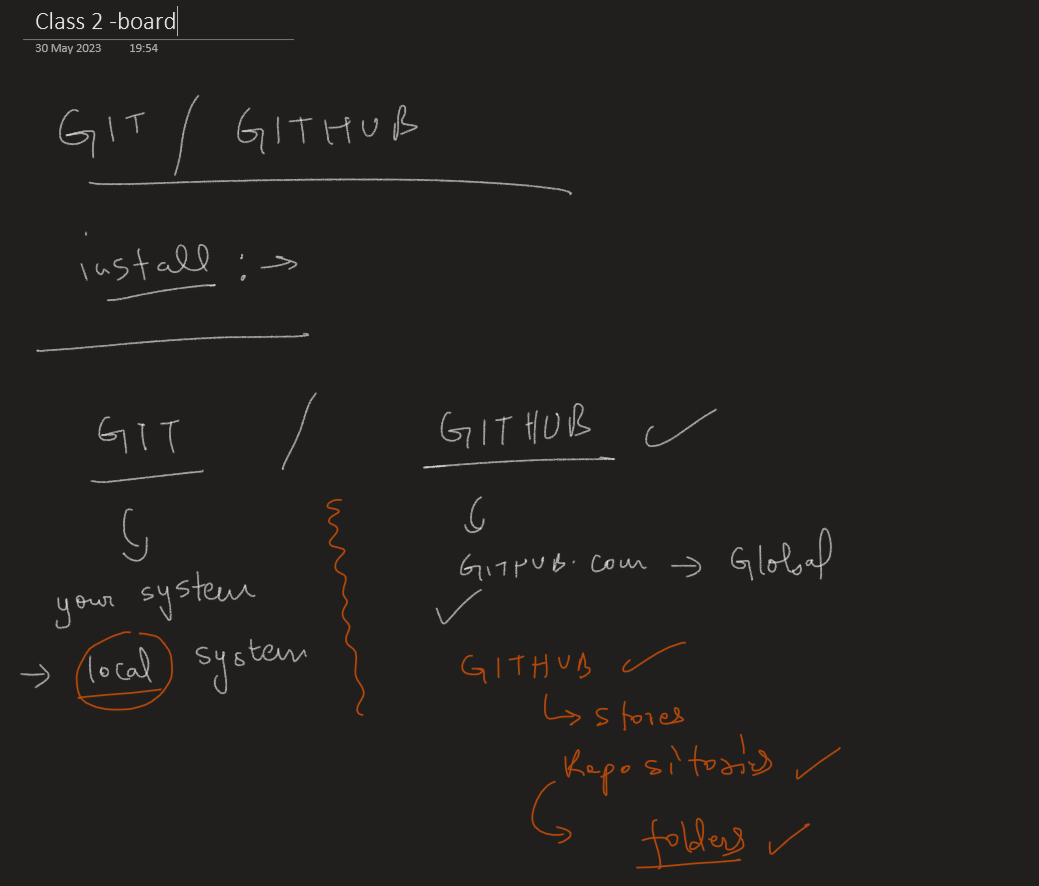 Class 2 -board
30 May 2023 19:54
GIT / GITHUB
install : →
GIT / GITHUB ✓
your system
→ local system
GITHUB.com → Global
✓
GITHUB ✓
↳ stores
Repositories ✓
folders ✓